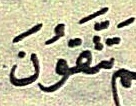 م تَتَّقُونَ